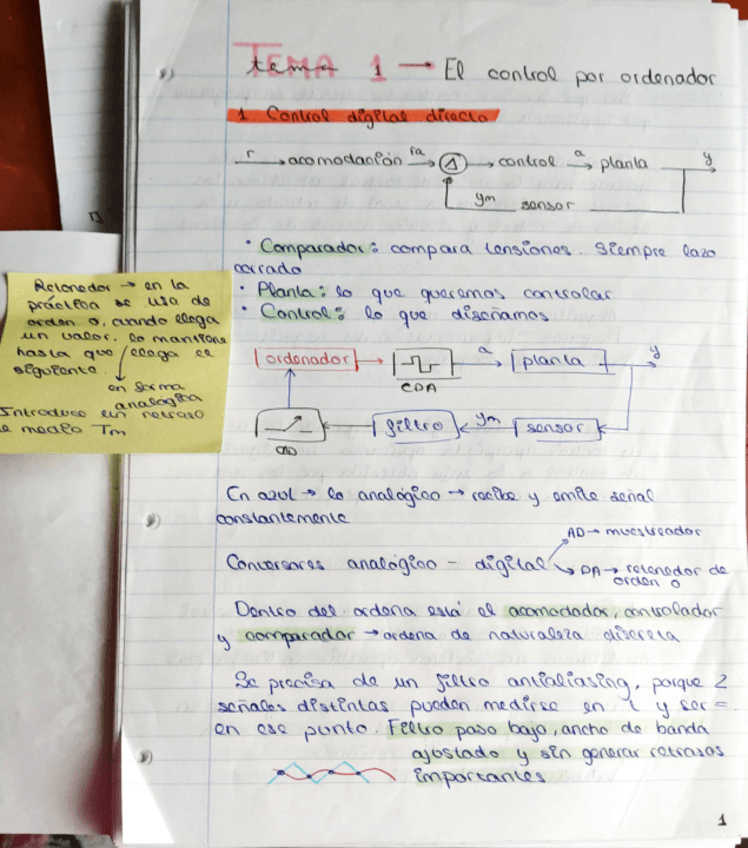 TEMA 1 → El control por ordenador
1. Control digital directo
r → acomodación ra → Δ → control a → planta y
ym sensor
· Comparador: compara tensiones. Siempre lazo
cerrado
· Planta: lo que queremos controlar
· Control: lo que diseñamos
Retenedor → en la
práctica se usa de
orden 0, cuando llega
un valor, lo mantiene
hasta que llega el
siguiente.
en forma
analógica
Introduce un retraso
de medio Tm
ordenador → CDA a → planta → y
filtro ← ym sensor
En azul → lo analógico → recibe y emite señal
constantemente
AD → muestreador
Conversores analógico - digital
DA → retenedor de
orden 0
Dentro del ordena está el acomodador, controlador
y comparador → ordena de naturaleza discreta
Se precisa de un filtro antialiasing, porque 2
señales distintas pueden medirse en t y ser =
en ese punto. Filtro paso bajo, ancho de banda
ajustado y sin generar retrasos
importantes
1